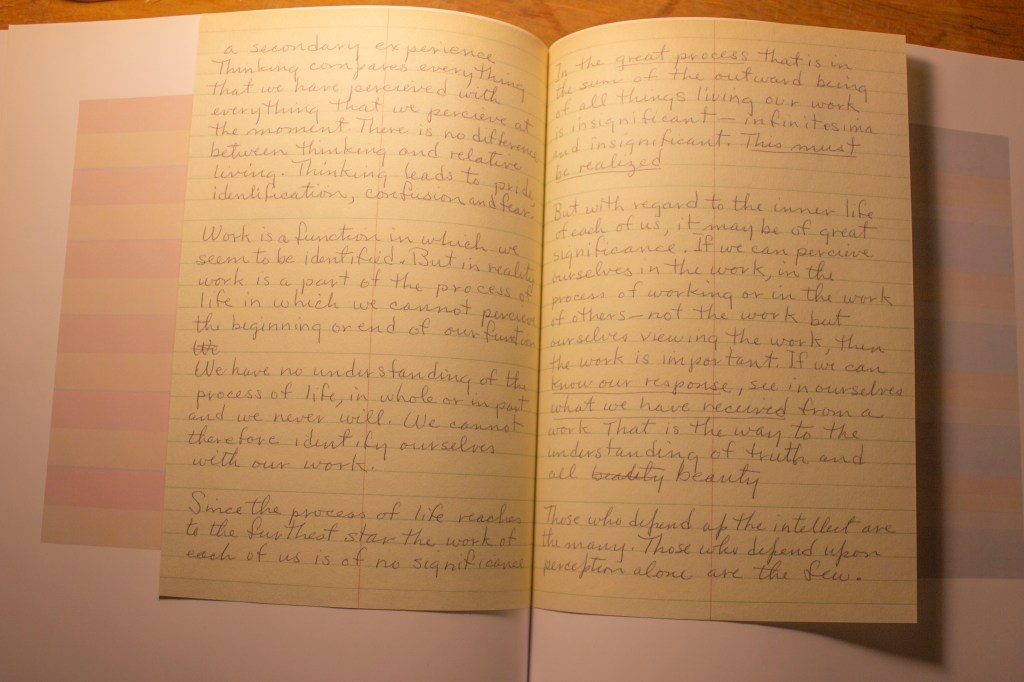 a secondary experience
Thinking compares everything
that we have percieved with
everything that we percieve at
the moment. There is no difference
between thinking and relative
living. Thinking leads to pride,
identification, confusion and fear.
Work is a function in which we
seem to be identified. But in reality
work is a part of the process of
life in which we cannot percieve
the beginning or end of our function
We
We have no understanding of the
process of life, in whole or in part
and we never will. We cannot
therefore identify ourselves
with our work.
Since the process of life reaches
to the furthest star the work of
each of us is of no significance
In the great process that is in
the sum of the outward being
of all things living our work
is insignificant – infinitesima
and insignificant. This must
be realized
But with regard to the inner life
of each of us, it may be of great
significance. If we can percieve
ourselves in the work, in the
process of working or in the work
of others – not the work but
ourselves viewing the work, then
the work is important. If we can
know our response, see in ourselves
what we have received from a
work That is the way to the
understanding of truth and
all beauty
Those who depend up the intellect are
the many. Those who depend upon
perception alone are the few.